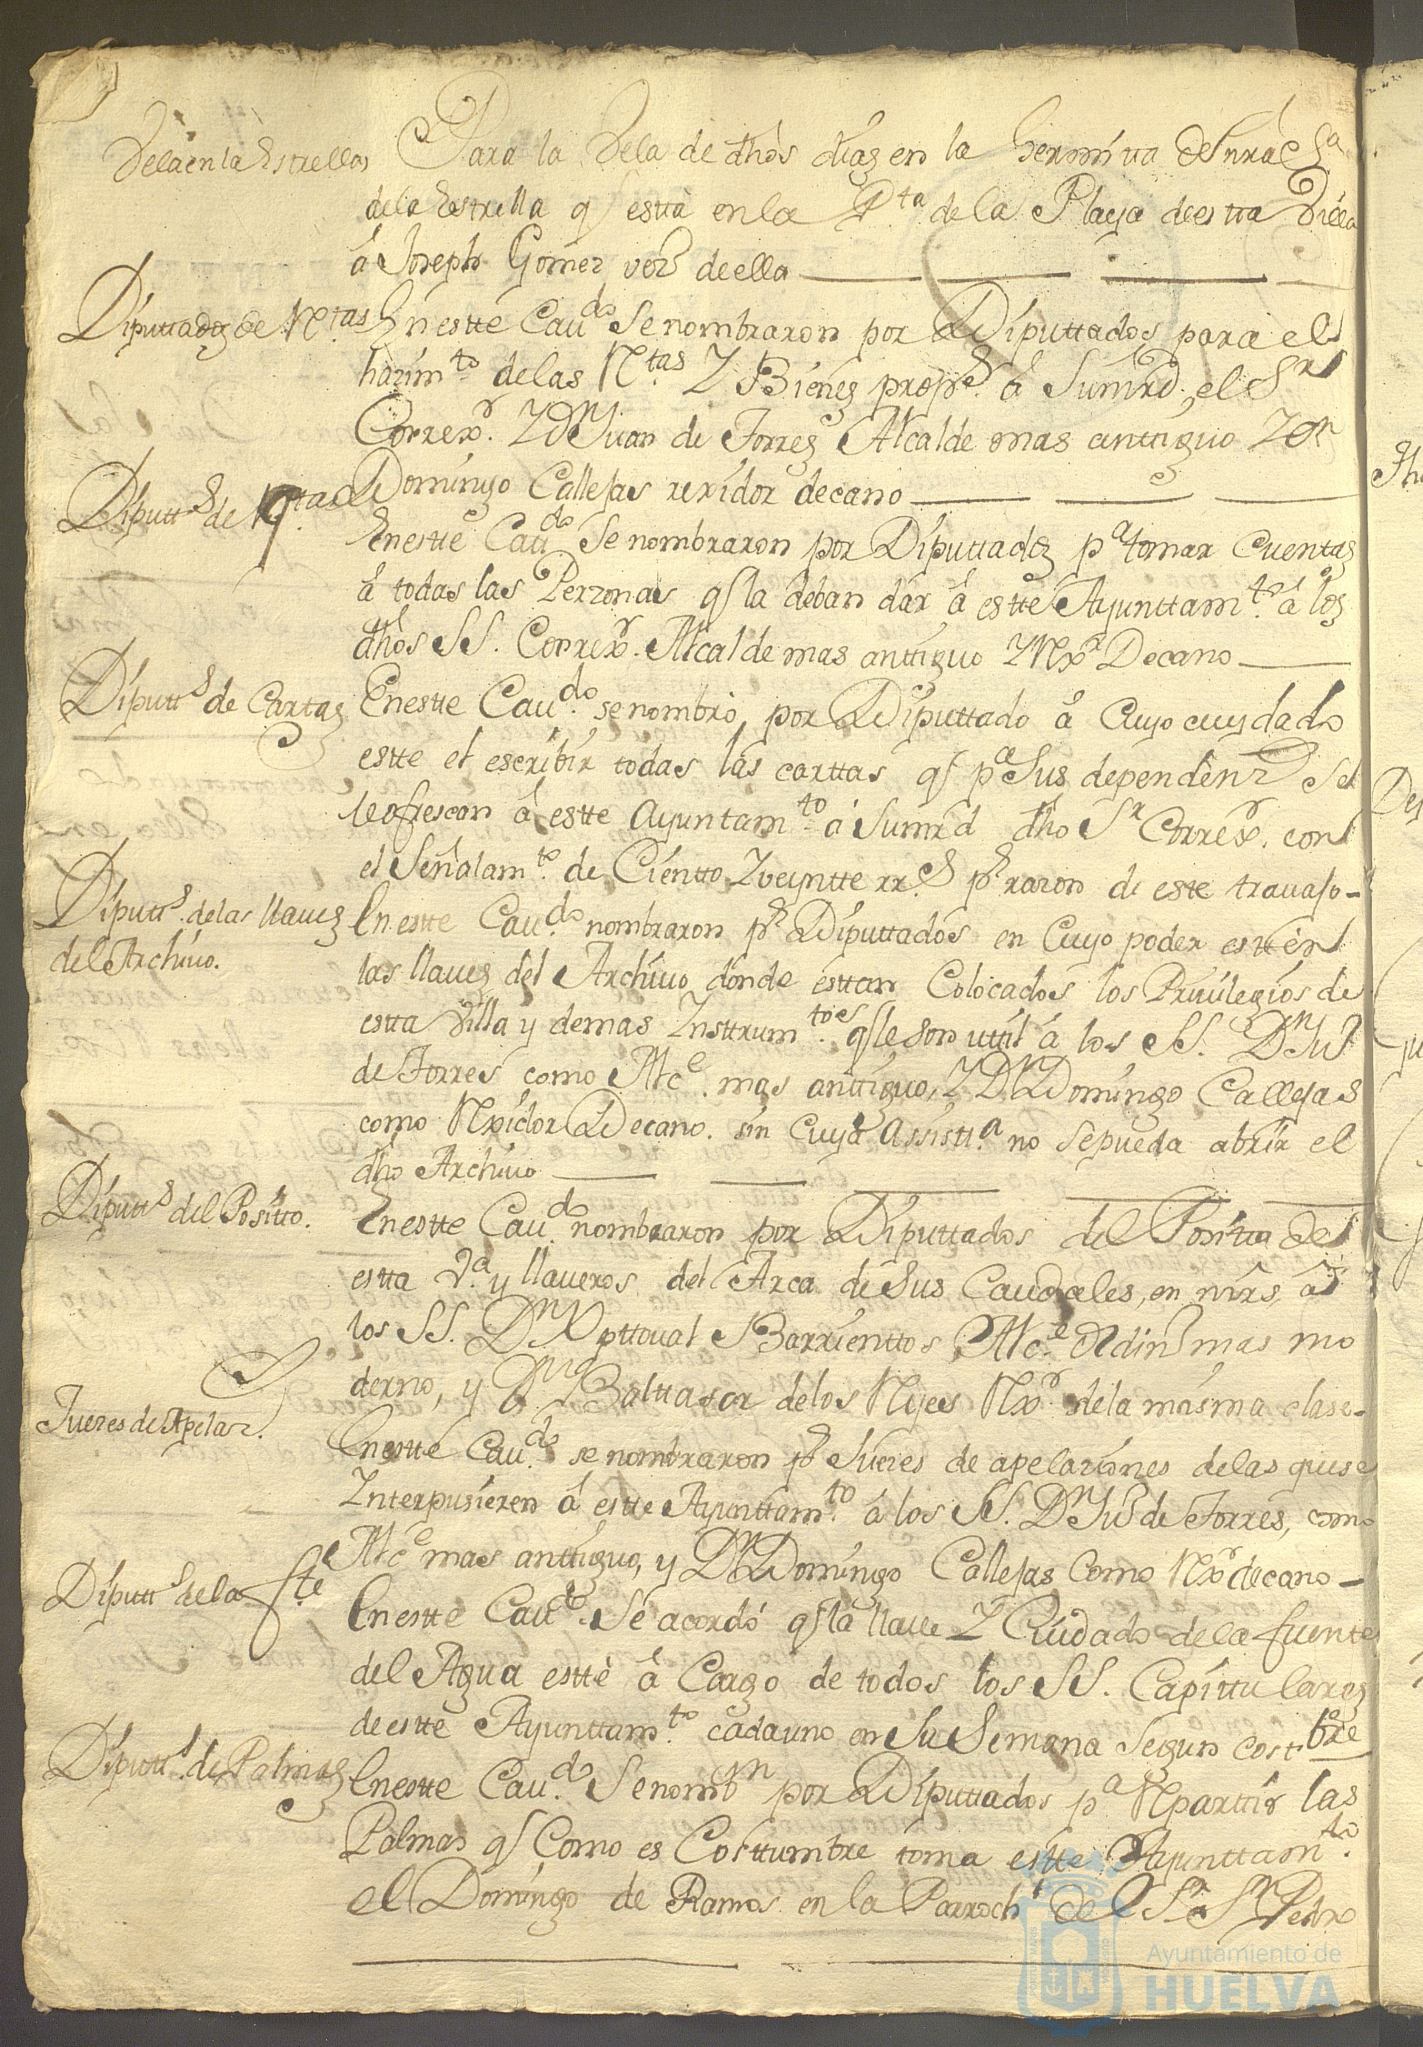 Vela en la Estrella
Para la Vela de dhos dias en la hermita de nrâ Sª
de la Estrella q esttà en la Ptª de la Playa de estta Villa
â Joseph Gomez vezº de ella
Diputtados de Rtas
En estte Cauᵈᵒ Se nombraron por Diputtados para el
hazimᵗᵒ de las Rᵗᵃˢ Y Bienes propˢ â Sumrd el Sʳ
Correxʳ. Y Dⁿ Juan de Torres Alcalde mas anttiguo Y Dⁿ
Domingo Callejas rexidor decano
Diputtˢ de
En estte Cauᵈᵒ Se nombraron por Diputtados pª tomar Cuentas
â todas las Perzonas q la deban dar â estte Ayunttamᵗᵒ â los
dhos SS. Correxʳ. Alcalde mas anttiguo Y Rxʳ Decano
Diputtˢ de Cartas
En estte Cauᵈᵒ. se nombrò por Diputtado â Cuyo cuydado
estte el escribir todas las carttas q pª Sus dependenzˢ Se
le ofrescan â estte Ayuntamᵗᵒ â Sumrd dho Sʳ Correxʳ. con
el Señalamᵗᵒ. de Cientto Y veyntte rrˢ pʳ razon de este travajo
Diputtˢ. de las llaves
del Archivo.
En estte Cauᵈᵒ. nombraron pʳ Diputtados en Cuyo poder estten
las llaves del Archivo donde esttan Colocados los Privilegios de
estta Villa y demas Ynsttrumᵗᵒˢ q le son uttil â los SS. Dⁿ Juº
de Torres como Alcᵉ. mas anttiguo, Y Dⁿ Domingo Callejas
como Rxidor Decano. sin Cuya assistª no se pueda abrir el
dho Archivo
Diputtˢ del Positto.
En estte Cauᵈᵒ nombraron por Diputtados del Positto de
estta Vª y llaveros del Arca de Sus Caudales, en mrs, â
los SS. Dⁿ Xpttoval Barrienttos Alcᵉ Ordinº mas mo
derno, y Dⁿ Balttasar de los Reyes Rxʳ. de la misma clase
Juezes de Apelaz.
En estte Cauᵈᵒ. se nombraron pʳ Juezes de apelaziones de las que se
Ynterpusieren â estte Ayunttamᵗᵒ â los SS. Dⁿ Juº de Torres, como
Alcᵉ mas anttiguo, y Dⁿ Domingo Callejas como Rxʳ decano
Diputtˢ de la fᵗᵉ
En estte Cauᵈᵒ. Se acordó q la llave Y Cuidado de la fuente
del Agua esttè â Cargo de todos los SS. Capittulares
de estte Ayunttamᵗᵒ. cada uno en Su Semana Segun costᵇʳᵉ
Diputtˢ. de Palmas
En estte Cauᵈᵒ. Se nombⁿ por Diputtados pª Reparttir las
Palmas q Como es Costtumbre toma estte Ayunttamᵗᵒ.
el Domingo de Ramos en la Parrochˡ de el Sʳ Sⁿ Pedro
Ayuntamiento de
HUELVA